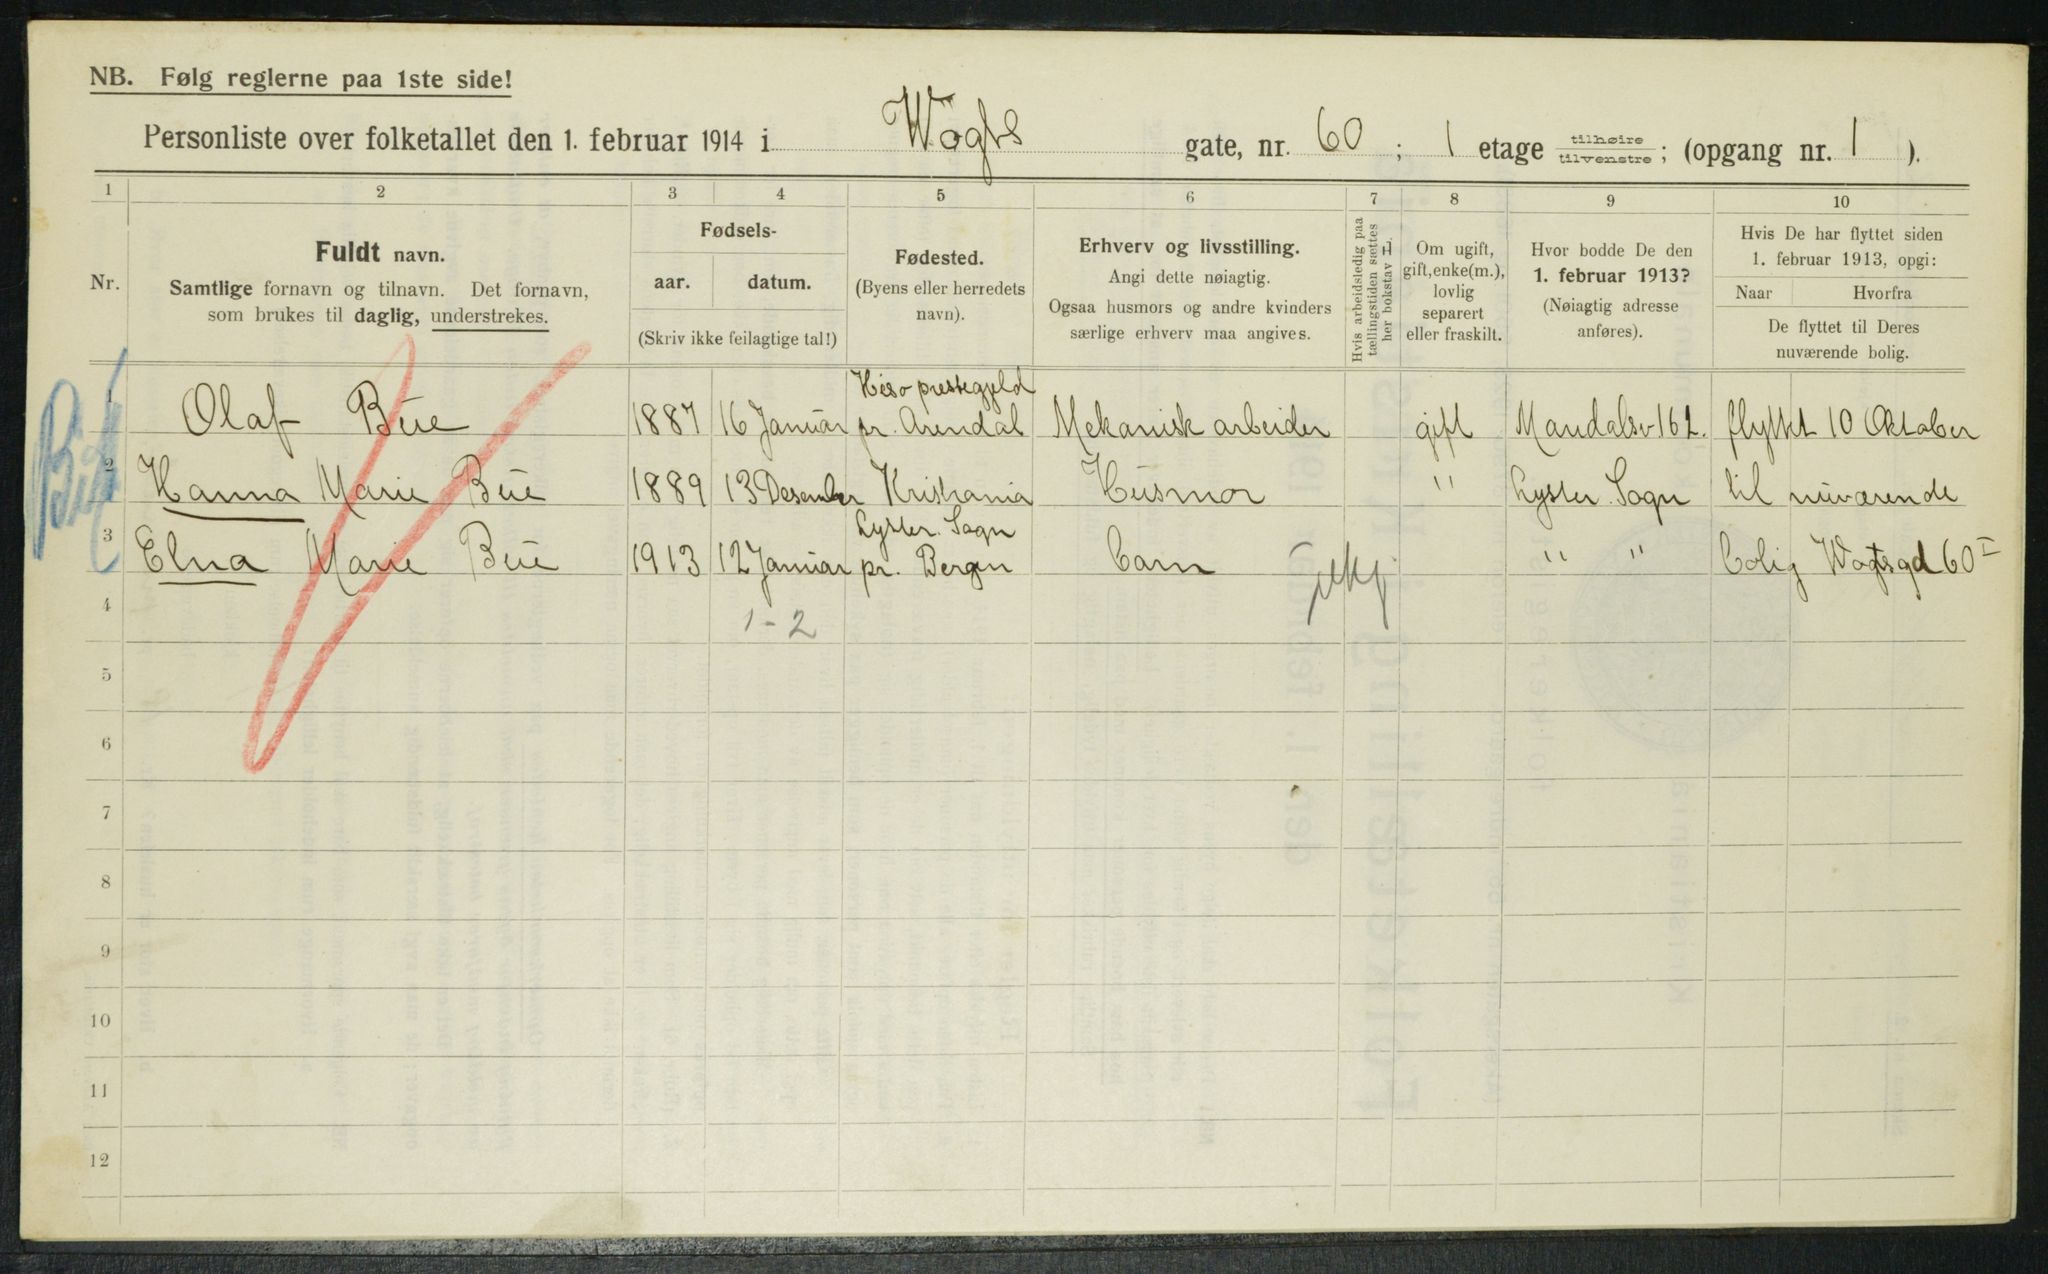 NB. Følg reglerne paa 1ste side!
Personliste over folketallet den 1. februar 1914 i Wogts gate, nr. 60 ; 1 etage tilhøire tilvenstre ; (opgang nr. 1 ).
1 2 3 4 5 6 7 8 9 10
Nr.
Fuldt navn.
Samtlige fornavn og tilnavn. Det fornavn,
som brukes til daglig, understrekes.
Fødsels-
aar. datum.
(Skriv ikke feilagtige tal!)
Fødested.
(Byens eller herredets
navn).
Erhverv og livsstilling.
Angi dette nøiagtig.
Ogsaa husmors og andre kvinders
særlige erhverv maa angives.
Hvis arbeidsledig paa
tællingstiden sættes
her bokstav L.
Om ugift,
gift, enke(m.),
lovlig
separert
eller fraskilt.
Hvor bodde De den
1. februar 1913?
(Nøiagtig adresse
anføres).
Hvis De har flyttet siden
1. februar 1913, opgi:
Naar Hvorfra
De flyttet til Deres
nuværende bolig.
Hisø prestegjeld
1 Olaf Bue 1887 16 Januar pr. Arendal Mekanisk arbeider gift Mandalsv. 16 2. flyttet 10 Oktober
2 Hanna Marie Bue 1889 13 Desember Kristiania Husmor " Lyster Sogn til nuværende
Lyster. Sogn
3 Elna Marie Bue 1913 12 Januar pr. Bergen Barn " " Bolig Wogtsgd 60 I
4 1-2
5
6
7
8
9
10
11
12